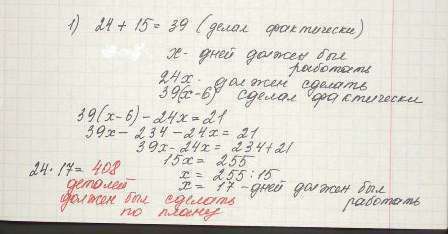 1) 24 + 15 = 39 (делал фактически)
x - дней должен был
работать
24x - должен сделать
39(x-6) сделал фактически
39(x-6) - 24x = 21
39x - 234 - 24x = 21
39x - 24x = 234 + 21
15x = 255
x = 255 : 15
x = 17 - дней должен был
работать
24 · 17 = 408
деталей
должен был сделать
по плану